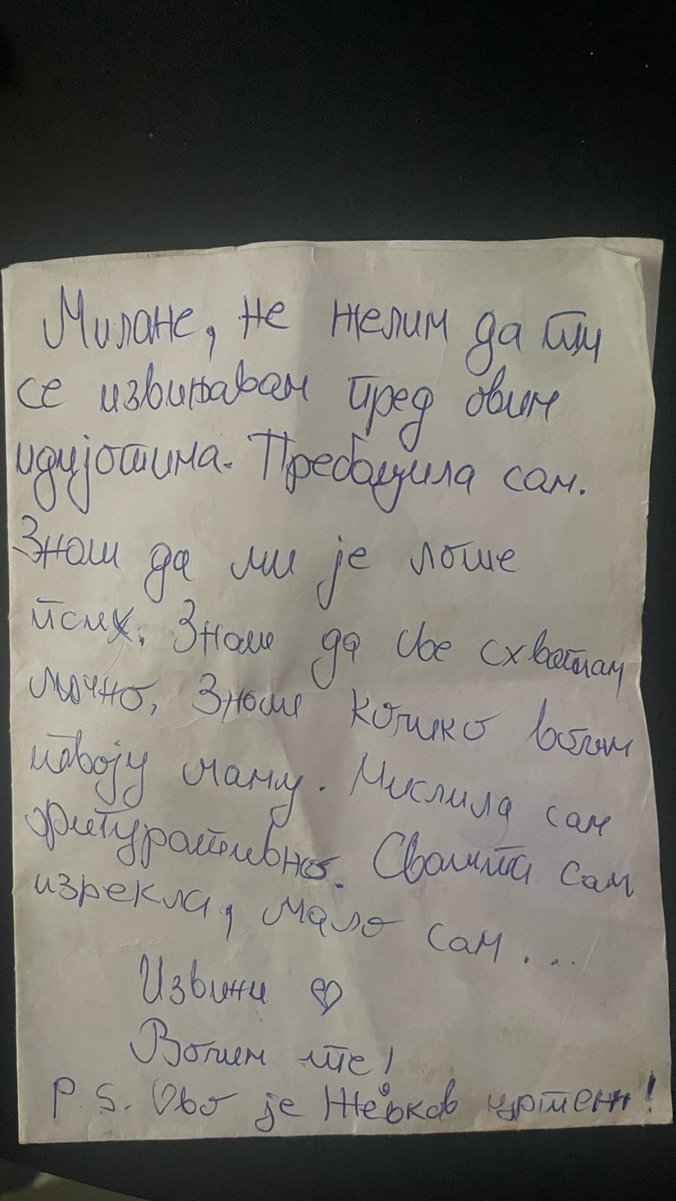 Милане, не желим да ти
се извињавам пред овим
идијотима. Пребацила сам.
Знаш да ми је лоше
псих. Знаш да све схватам
лично, Знаш колико волим
твоју маму. Мислила сам
фигуративно. Свашта сам
изрекла, мало сам...
Извини
Волим те!
P.S. Ово је Жевков цртеж!